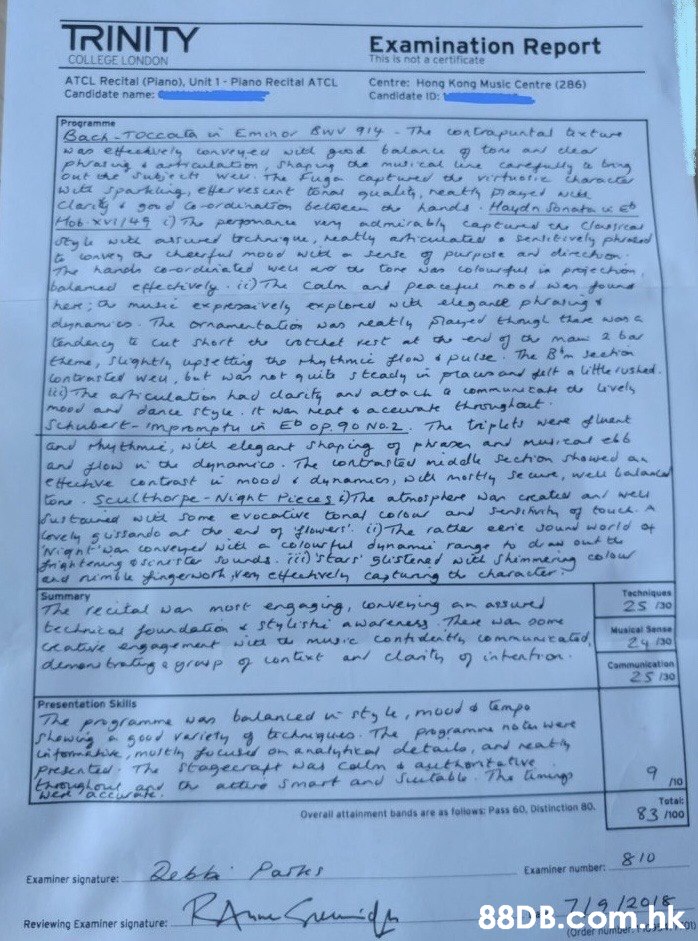 TRINITY
COLLEGE LONDON
Examination Report
This is not a certificate
ATCL Recital (Piano), Unit 1 - Piano Recital ATCL
Candidate name:
Centre: Hong Kong Music Centre (286)
Candidate ID:
Programme
Bach - Toccata in E minor BWV 914 - The contrapuntal texture
was effectively conveyed with good balance of tone and clear
phrasing & articulation, shaping the musical line carefully to bring
out the subjects well. The Fuga captured the virtuosic character
with sparkling, effervescent tonal quality, neatly played with
clarity & good co-ordination between the hands. Haydn Sonata in Eb
Hob. XVI/49 i) The performance very admirably captured the classical
style with assured technique, neatly articulated & sensitively phrased
to convey the cheerful mood with a sense of purpose and direction.
The hands co-ordinated well and the tone was colourful in projection,
balanced effectively. ii) The calm and peaceful mood was found
here; the music expressively explored with elegant phrasing &
dynamics. The ornamentation was neatly played though there was a
tendancy to cut short the crotchet rest at the end of the main 2 bar
theme, slightly upsetting the rhythmic flow & pulse. The Bbm section
contrasted well, but was not quite steady in places and felt a little rushed.
iii) The articulation had clarity and attack to communicate the lively
mood and dance style. It was neat & accurate throughout.
Schubert - Impromptu in Eb Op. 90 No. 2. The triplets were fluent
and rhythmic, with elegant shaping of phrases and musical ebb
and flow in the dynamics. The contrasted middle section showed an
effective contrast in mood & dynamics, with mostly secure, well balanced
tone. Sculthorpe - Night Pieces i) The atmosphere was created and well
sustained with some evocative tonal colour and sensitivity of touch. A
lovely glissando at the end of 'flowers'. ii) The rather eerie sound world of
'Night' was conveyed with a colourful dynamic range to draw out the
frightening & sinister sounds. iii) 'Stars' glistened with shimmering colour
and nimble fingerwork, very effectively capturing the character.
Summary
The recital was most engaging, conveying an assured
technical foundation & stylistic awareness. There was some
creative engagement with the music confidently communicated,
demonstrating a grasp of context and clarity of intention.
Techniques
25 /30
Musical Sense
24 /30
Communication
25 /30
Presentation Skills
The programme was balanced in style, mood & tempo
showing a good variety of techniques. The programme notes were
informative, mostly focused on analytical details, and neatly
presented. The stagecraft was calm & authoritative
throughout and the attire smart and suitable. The timings
were accurate.
9 /10
Total:
83 /100
Overall attainment bands are as follows: Pass 60, Distinction 80.
Examiner signature:
Examiner number: 810
Reviewing Examiner signature:
7/9/2018
88DB.com.hk
(Order number: